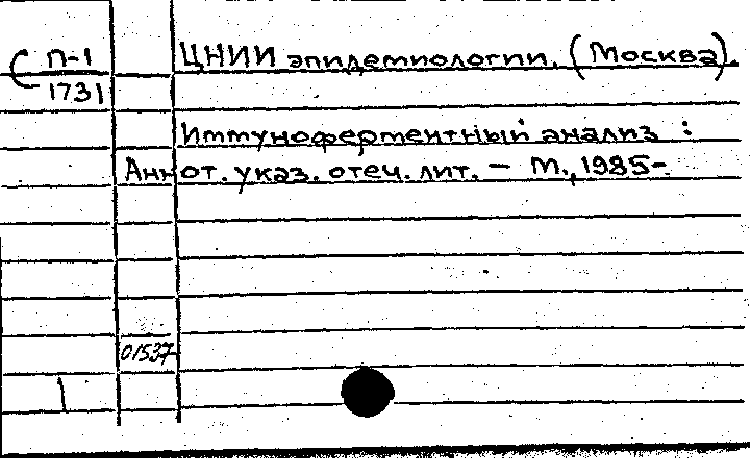 П-1
1731
ЦНИИ эпидемиологии. (Москва).
Иммуноферментный анализ :
Аннот. указ. отеч. лит. – М., 1985-
01537